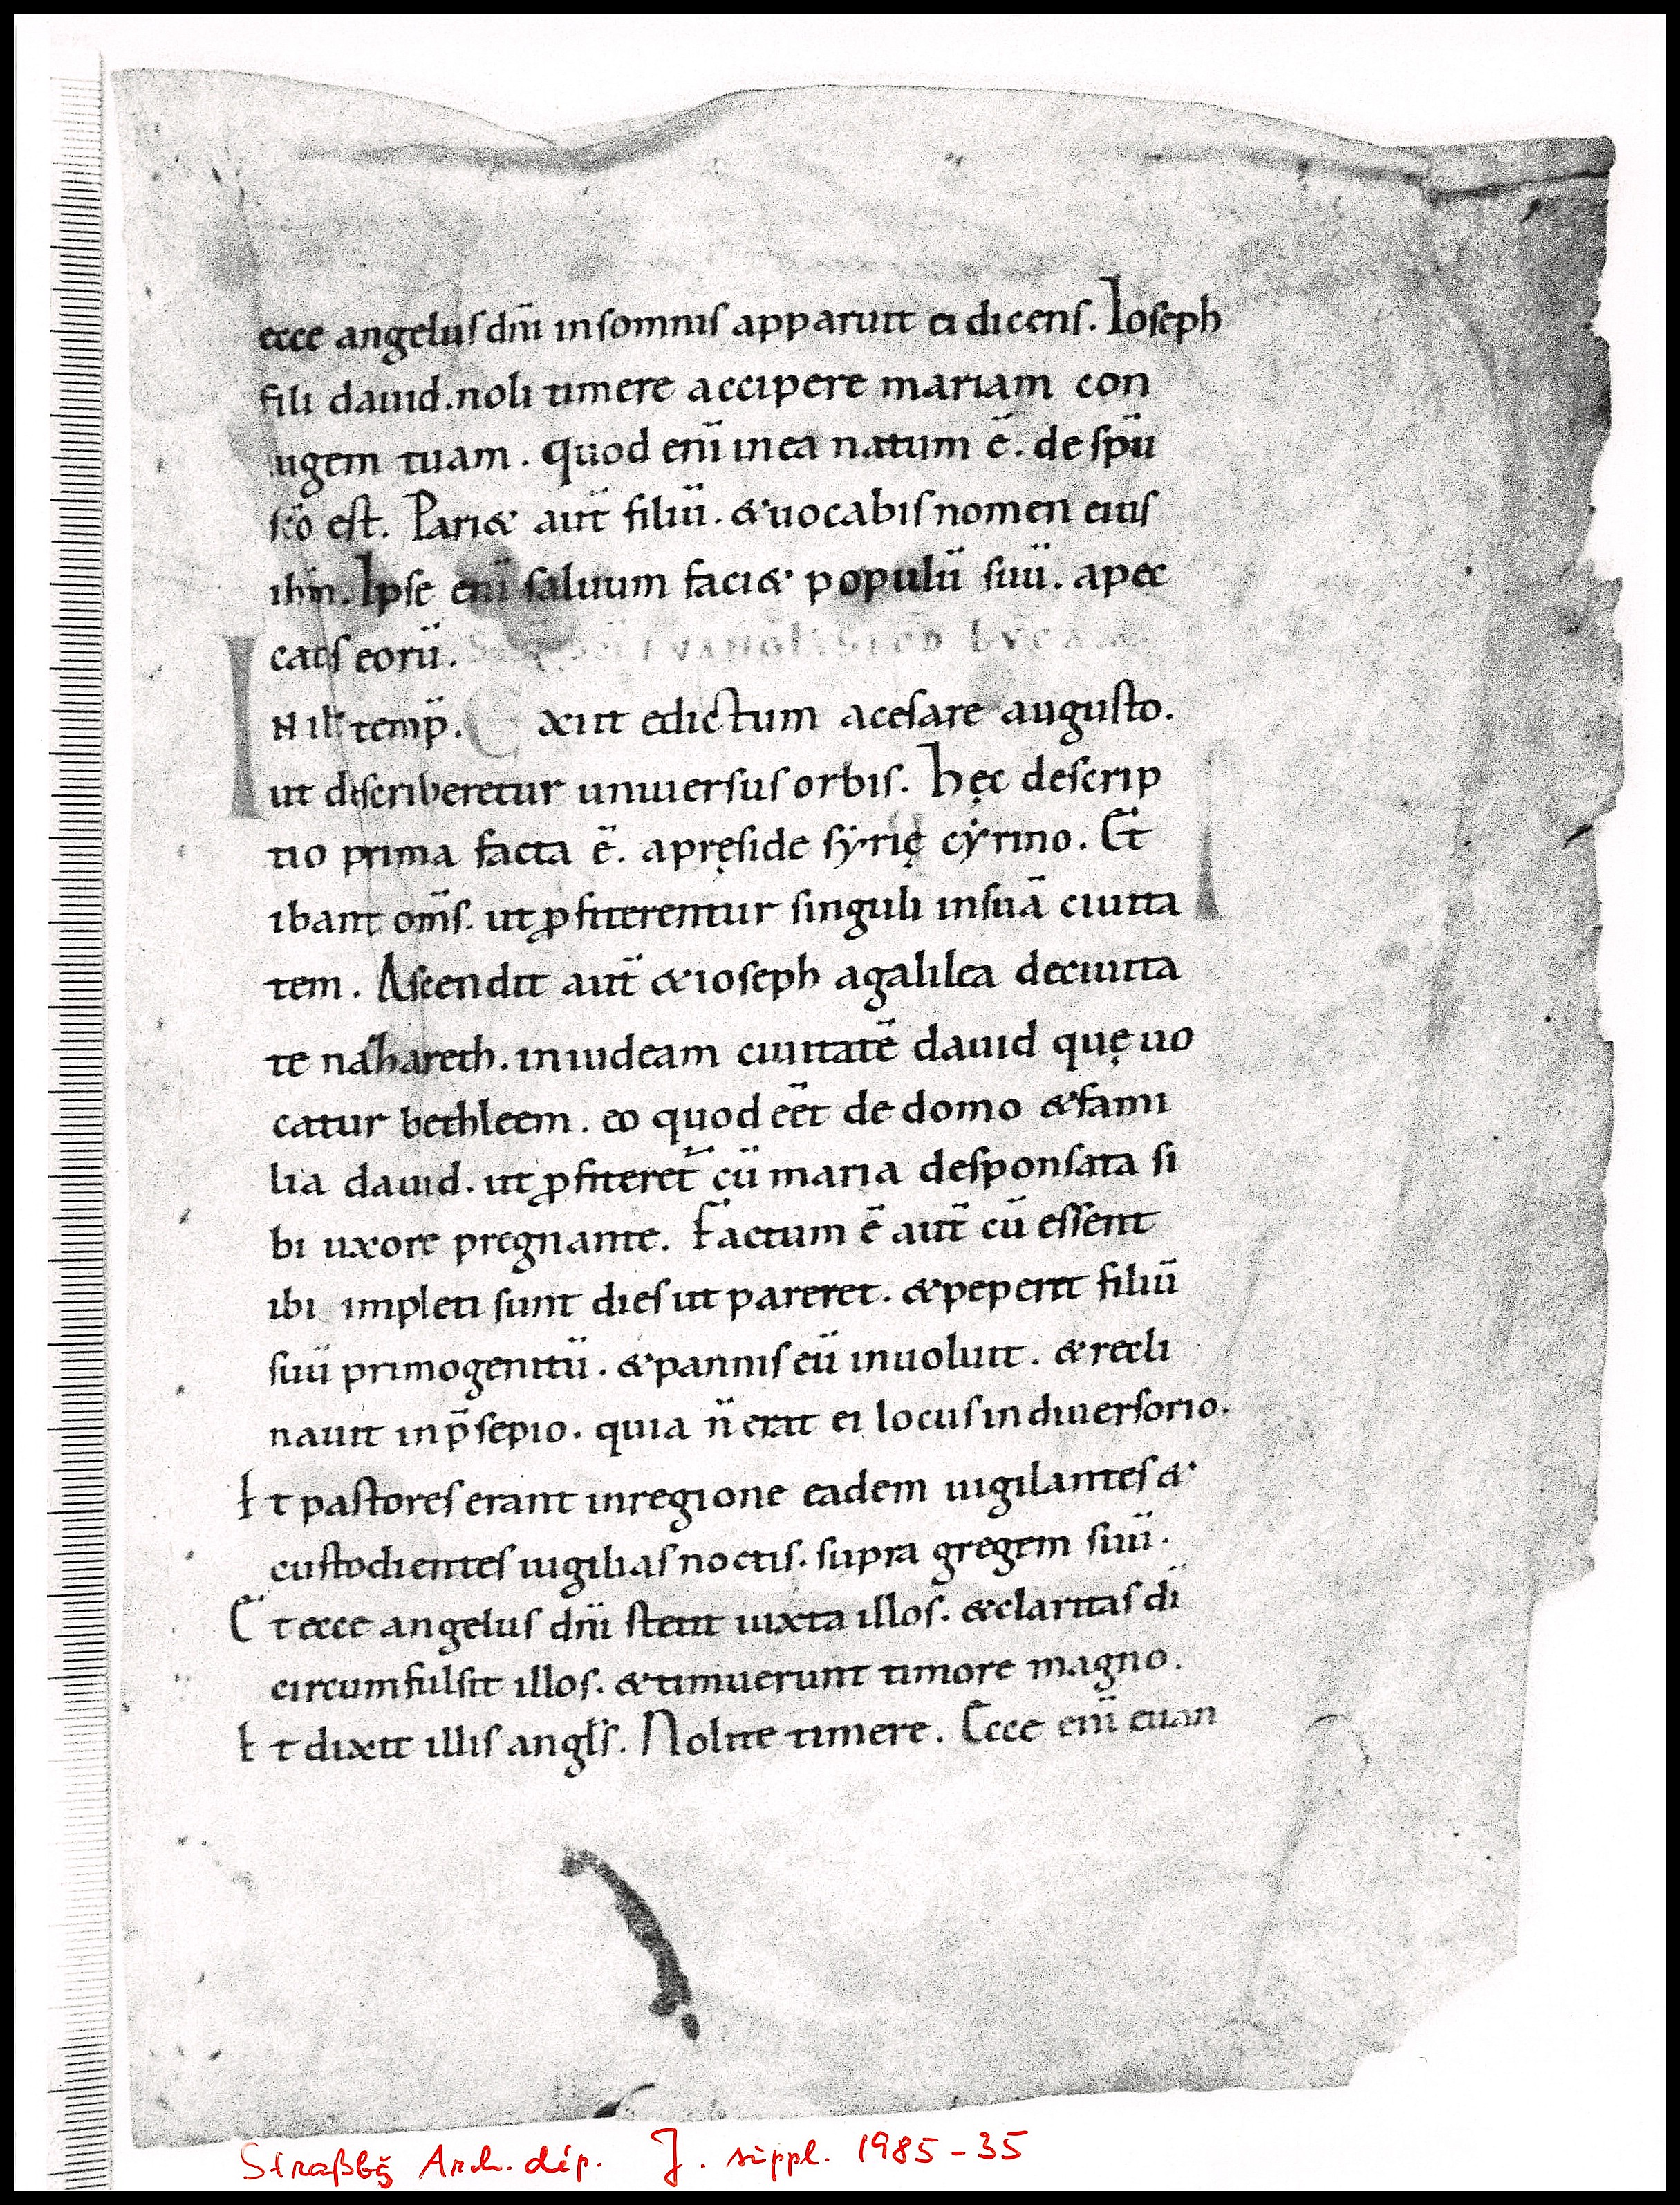 ecce angelus dñi insomnis apparuit ei dicens. Ioseph
fili dauid. noli timere accipere mariam con
iugem tuam. quod eni̅ inea natum ē. de spū
sc̄o est. Pari& aut̄ filiū. & uocabis nomen eius
ih̄m. Ipse eni̅ saluum faci& populū suū. apec
catis eorū. LVCAM.
IN ill̄ temp̄. Exiit edictum acesare augusto.
ut discriberetur uniuersus orbis. Hęc descrip
tio prima facta ē. apręside syrię cyrino. Et
ibant om̄s. ut ꝓfiterentur singuli insuā ciuita
tem. Ascendit aut̄ & ioseph agalilea deciuita
te nazareth. in iudeam ciuitatē dauid quę uo
catur bethleem. eo quod eēt de domo & fami
lia dauid. ut ꝓfiteret̄ cū maria desponsata si
bi uxore pregnante. Factum ē aut̄ cū essent
ibi impleti sunt dies ut pareret. & peperit filiū
suū primogenitū. & pannis eū inuoluit. & recli
nauit inp̄sepio. quia n̄ erat ei locus in diuersorio.
Et pastores erant inregione eadem uigilantes &
custodientes uigilias noctis. supra gregem suū.
Et ecce angelus dñi stetit iuxta illos. & claritas dī
circumfulsit illos. & timuerunt timore magno.
Et dixit illis angl̄s. Nolite timere. Ecce eni̅ euan
Straßbg Arch. dép. J. suppl. 1985-35